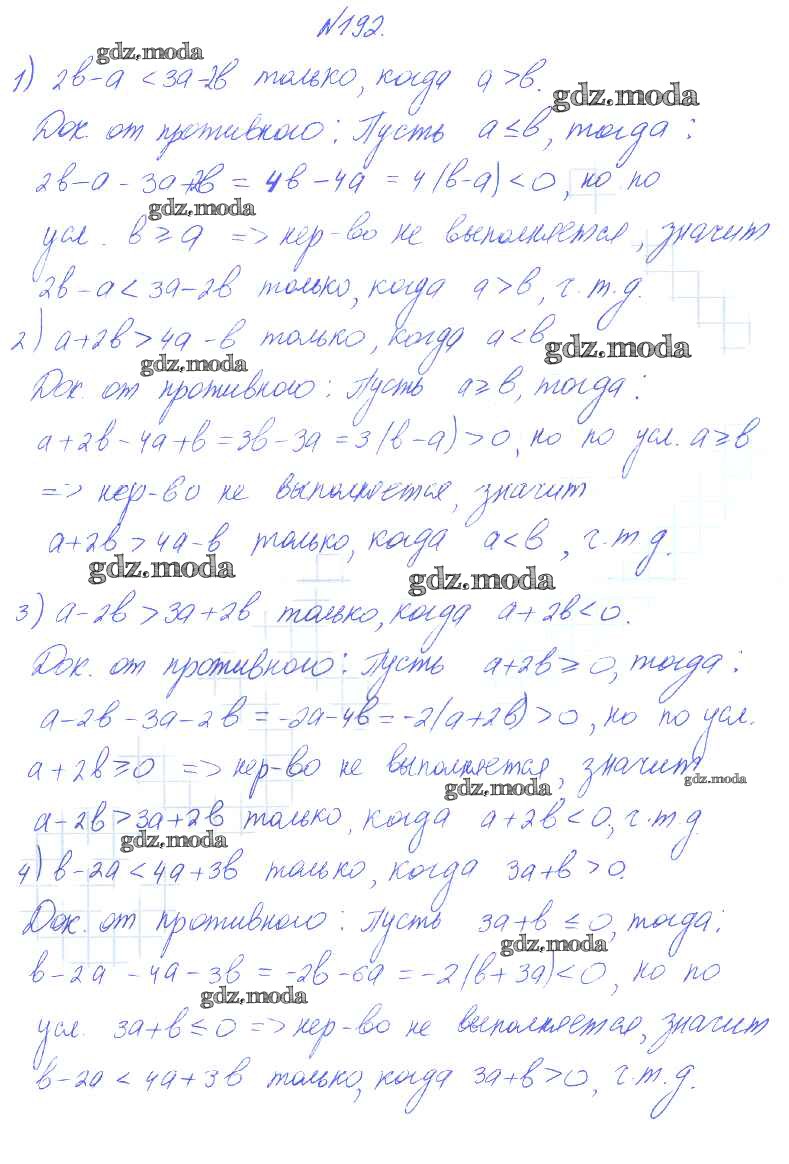 №192.
1) 2в-а < 3а-2в только, когда а>в.
Док. от противного: Пусть а≤в, тогда:
2в-а-3а+2в = 4в-4а = 4(в-а)<0, но по
усл. в≥а => нер-во не выполняется, значит
2в-а<3а-2в только, когда а>в, ч.т.д.
2) а+2в>4а-в только, когда а<в
Док. от противного: Пусть а≥в, тогда:
а+2в-4а+в=3в-3а=3(в-а)>0, но по усл. а≥в
=> нер-во не выполняется, значит
а+2в>4а-в только, когда а<в, ч.т.д.
3) а-2в>3а+2в только, когда а+2в<0.
Док. от противного: Пусть а+2в≥0, тогда:
а-2в-3а-2в=-2а-4в=-2(а+2в)>0, но по усл.
а+2в≥0 => нер-во не выполняется, значит
а-2в>3а+2в только, когда а+2в<0, ч.т.д
4) в-2а<4а+3в только, когда 3а+в>0.
Док. от противного: Пусть 3а+в≤0, тогда:
в-2а-4а-3в=-2в-6а=-2(в+3а)<0, но по
усл. 3а+в≤0 => нер-во не выполняется, значит
в-2а<4а+3в только, когда 3а+в>0, ч.т.д.
gdz.moda
gdz.moda
gdz.moda
gdz.moda
gdz.moda
gdz.moda
gdz.moda
gdz.moda
gdz.moda
gdz.moda
gdz.moda
gdz.moda